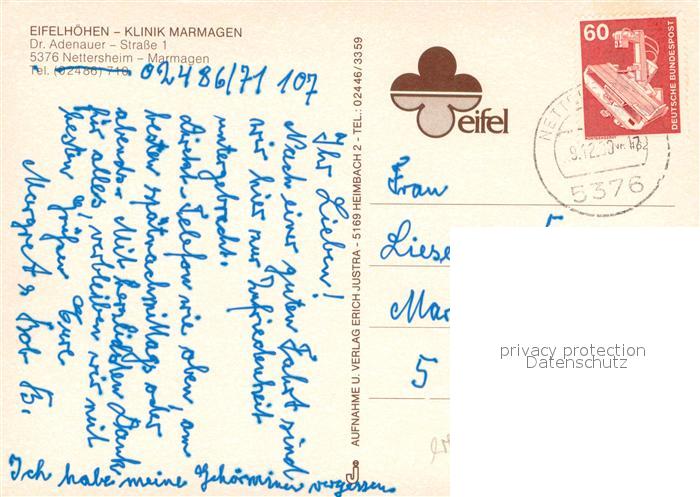 EIFELHÖHEN – KLINIK MARMAGEN
Dr. Adenauer – Straße 1
5376 Nettersheim – Marmagen
Tel. (02486) 710
02486/71 107
Ihr Lieben!
Nach einer guten Fahrt sind
wir hier zur Zufriedenheit
untergebracht.
Direkt-Telefon wie oben, am
besten spätnachmittags oder
abends. Mit herzlichen Dank
für alles, verbleiben wir mit
besten Grüßen Eure
Margret u. Bob B.
Ich habe meine Gehörminer vergessen
AUFNAHME U. VERLAG ERICH JUSTRA – 5169 HEIMBACH 2 – TEL.: 02446/3359
eifel
60
DEUTSCHE BUNDESPOST
9.12.80
5376
Frau
Liese
Mar
5
privacy protection
Datenschutz